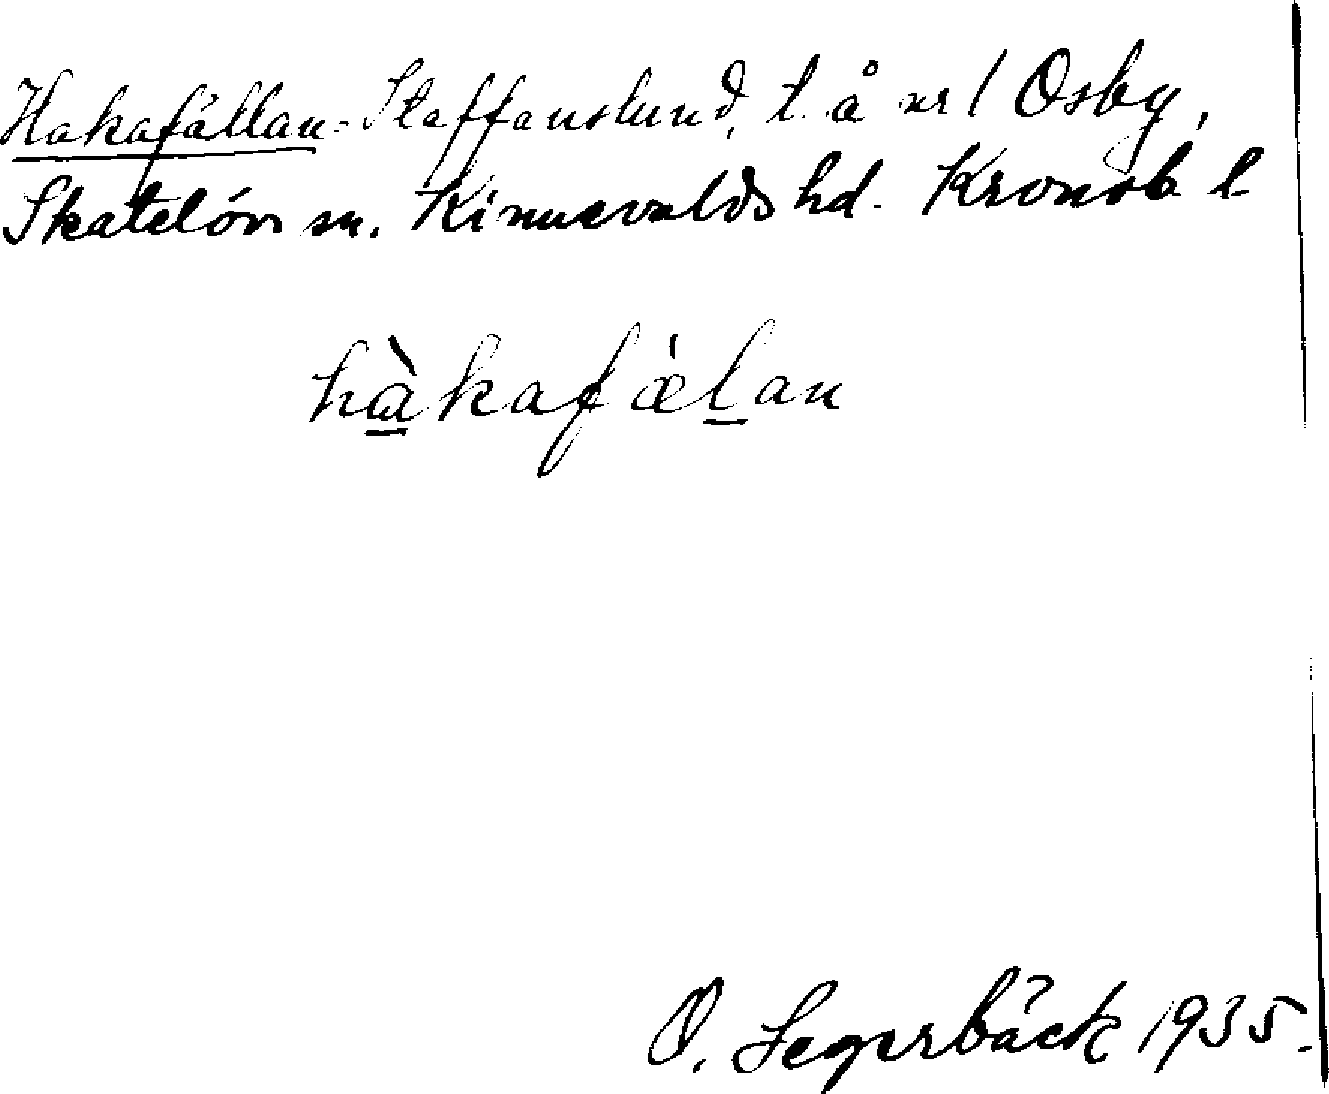 Hakafällan-Staffanslund, t. å nr 1 Osby,
Skatelövs sn. Kinnevalds hd. Kronob l
hàkafǽlan
O. Segerbäck 1935.